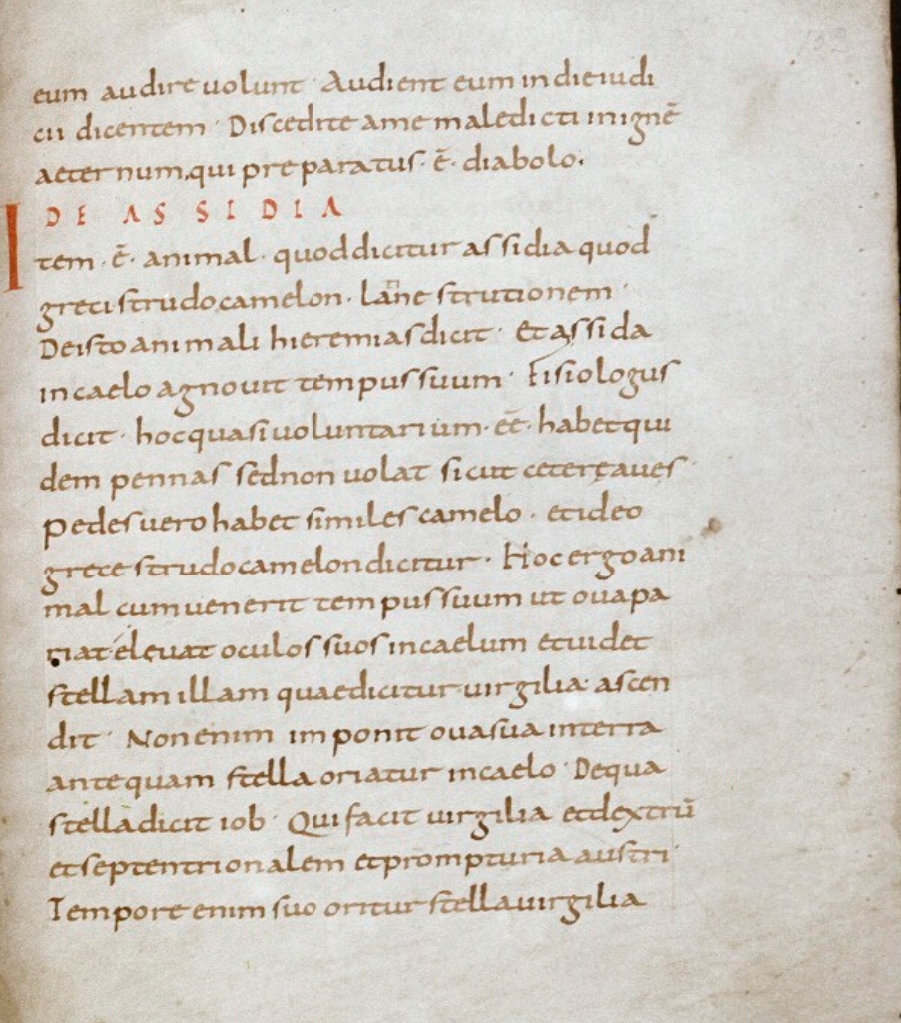 eum audire uolunt · Audient eum in die iudi
cii dicentem · Discedite a me maledicti in ignē
aeternum, qui preparatus · ē · diabolo.
DE ASSIDIA
Item · ē · animal · quod dicitur assidia quod
greci strudocamelon · latīne strutionem ·
De isto animali hieremias dicit · Et assida
in caelo agnouit tempus suum · Fisiologus
dicit · hoc quasi uoluntarium · eē · habet qui
dem pennas sed non uolat sicut ceterę aues ·
Pedes uero habet similes camelo · et ideo
grece strudocamelon dicitur · Hoc ergo ani
mal cum uenerit tempus suum ut oua pa
riat éleuat oculos suos in caelum et uidet
stellam illam quae dicitur uirgilia · ascen
dit · Non enim imponit oua sua in terra
antequam stella oriatur in caelo · De qua
stella dicit iob · Qui facit uirgilia et dextrū
et septentrionalem et prompturia austri ·
Tempore enim suo oritur stella uirgilia